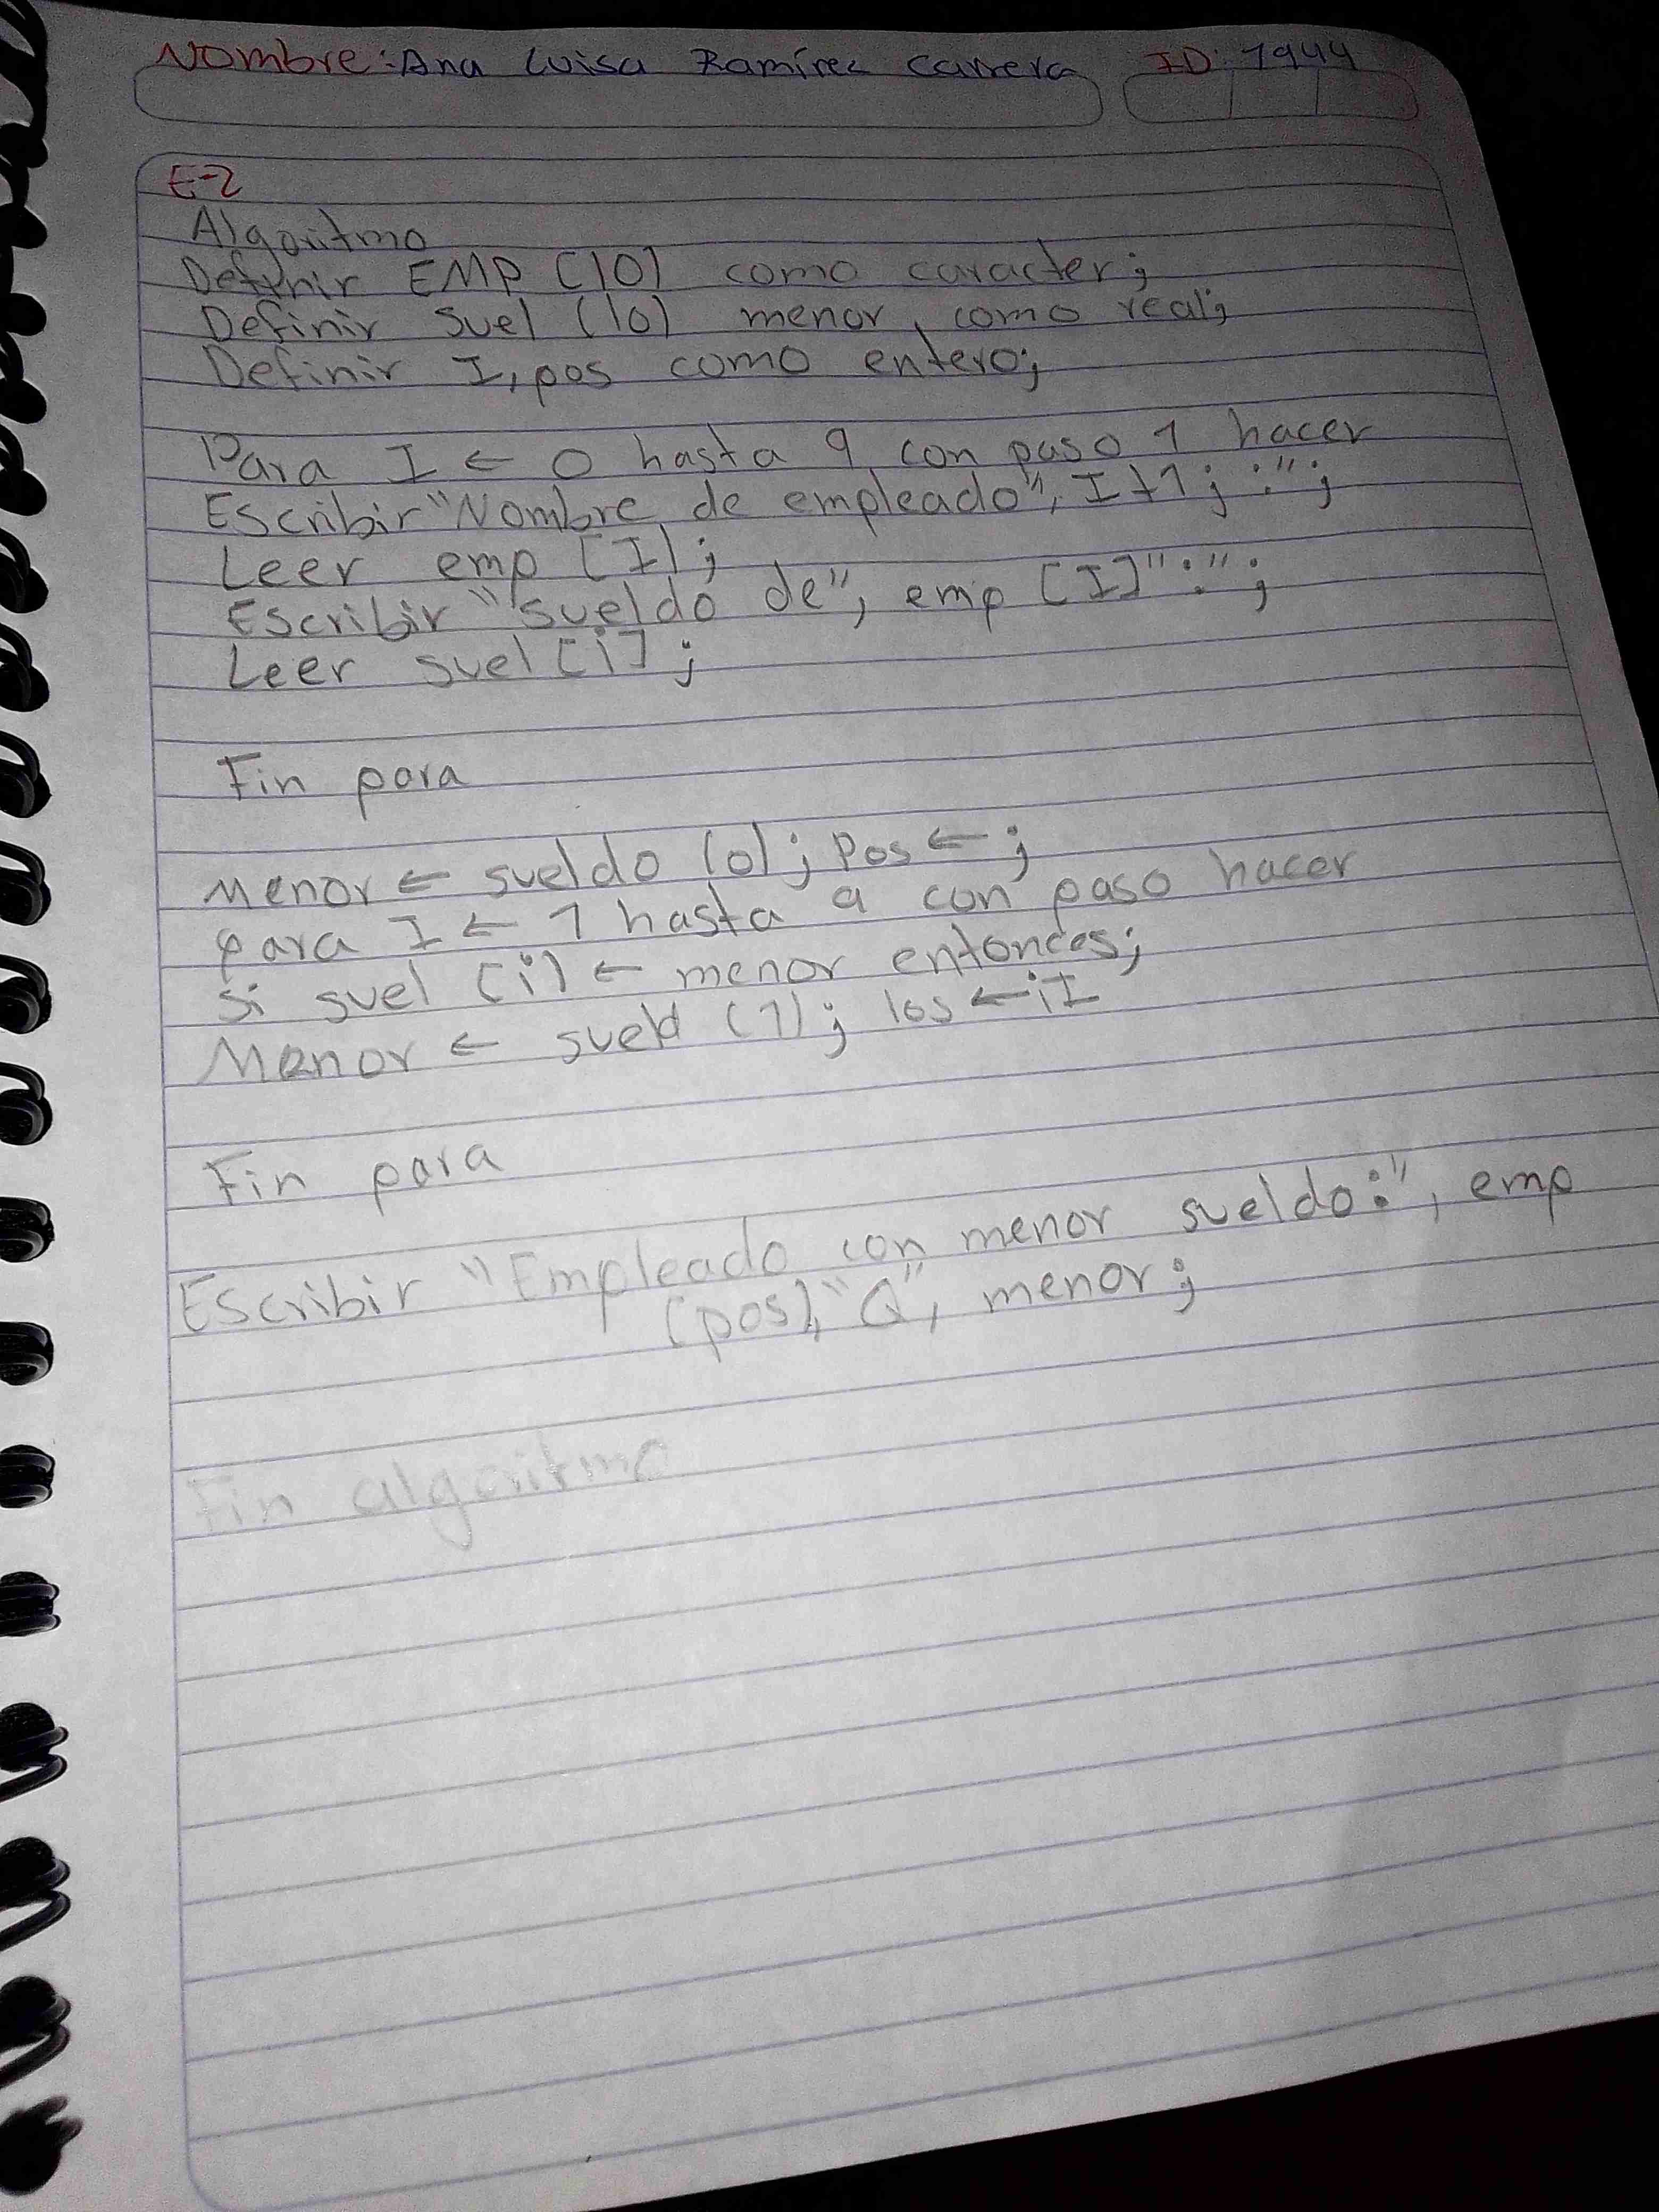 Nombre: Ana Luisa Ramírez Carrera ID: 1944
E-2
Algoritmo
Definir EMP [10] como caracter;
Definir suel [10] menor, como real;
Definir I, pos como entero;
Para I ← 0 hasta 9 con paso 1 hacer
Escribir "Nombre de empleado", I+1; :";
Leer emp [I];
Escribir "sueldo de", emp [I]":";
Leer suel [i];
Fin para
Menor ← sueldo [0]; Pos ← ;
para I ← 1 hasta 9 con paso hacer
si suel [i] ← menor entonces;
Menor ← sueld [1]; los ← iI
Fin para
Escribir "Empleado con menor sueldo:", emp
[pos], "Q", menor;
Fin algoritmo